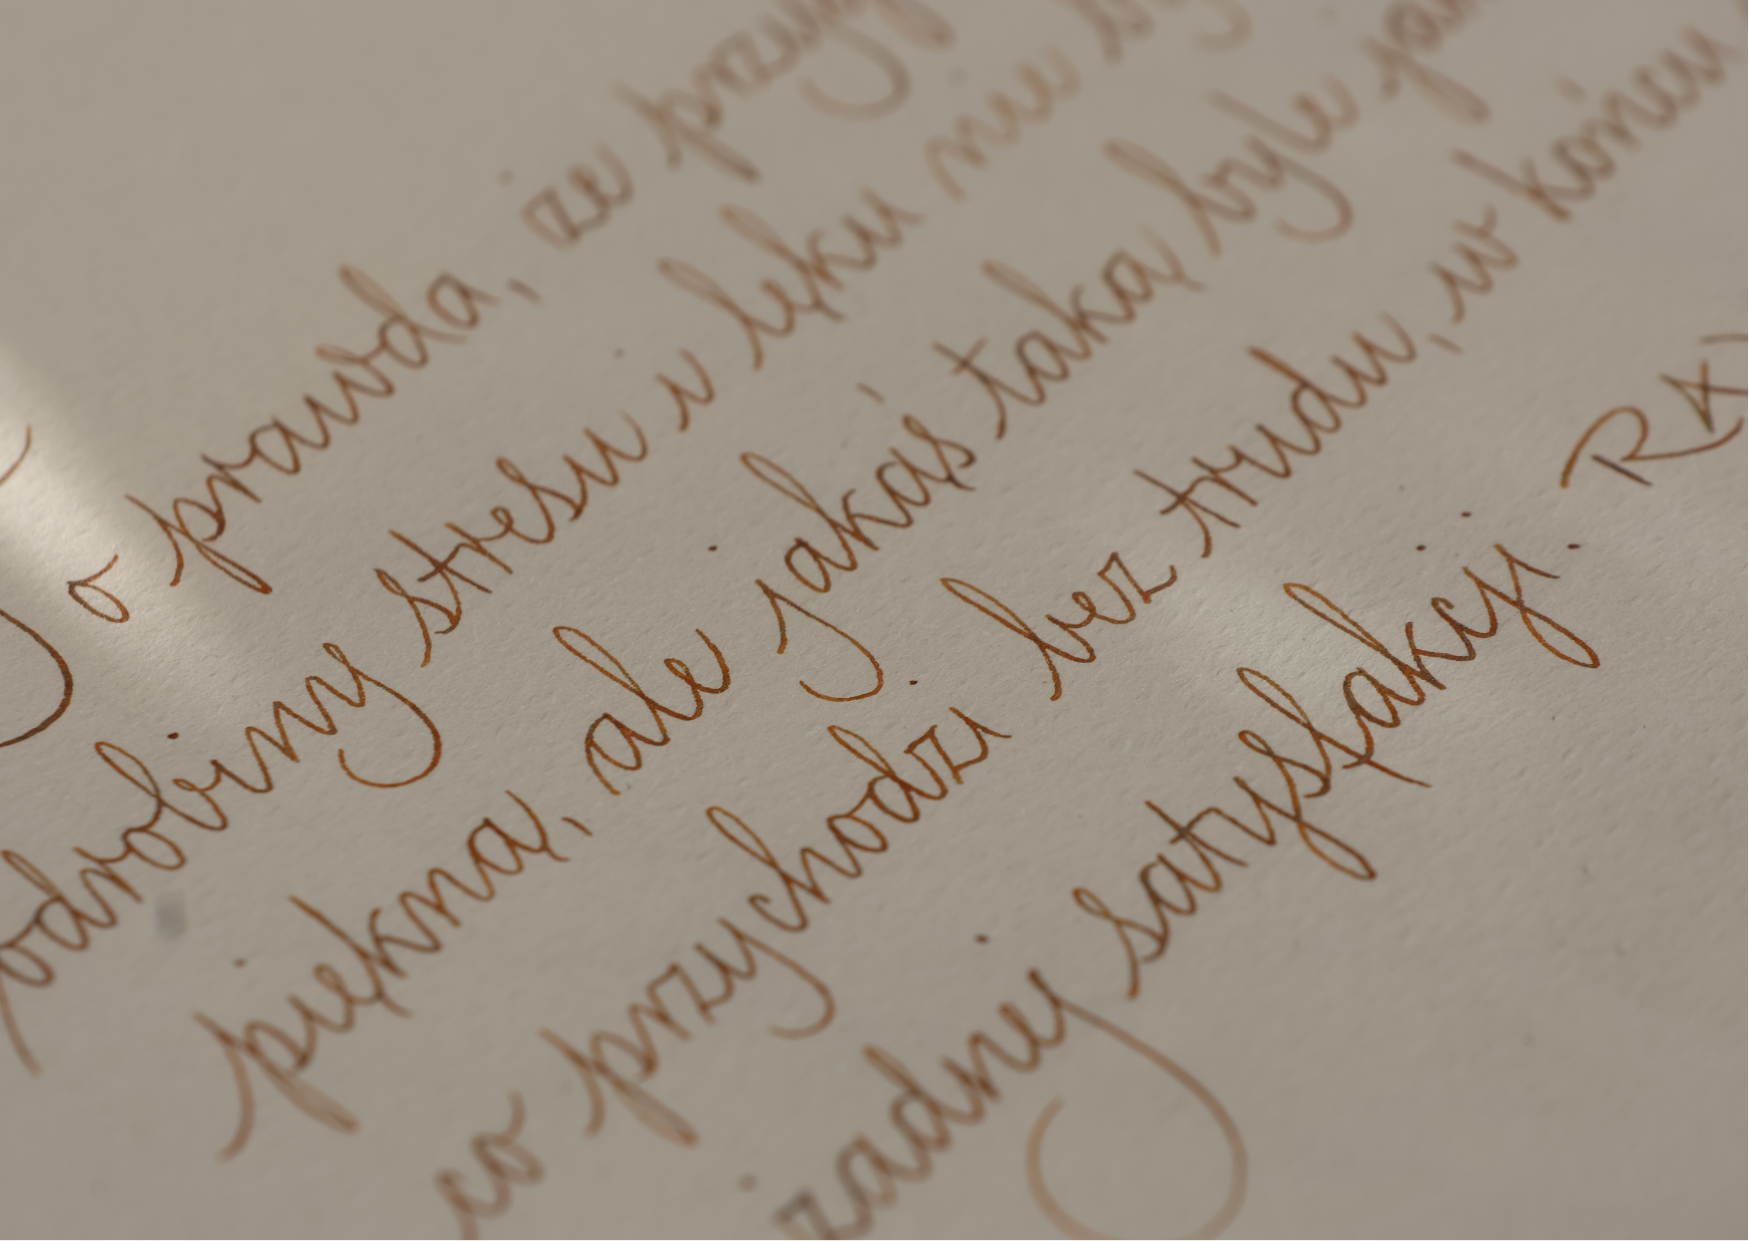 o prawda, że
odrobiny stresu i lęku nie
piękna, ale jakaś taka byle
co przychodzi bez trudu, w końcu
żadnej satysfakcji.